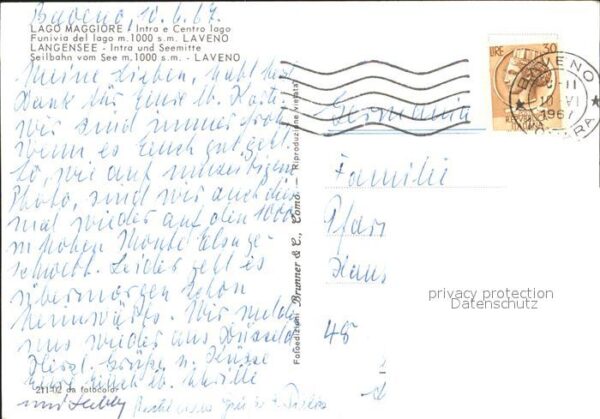 Baveno, 10.6.67.
LAGO MAGGIORE - Intra e Centro lago
Funivia del lago m. 1000 s.m. LAVENO
LANGENSEE - Intra und Seemitte
Seilbahn vom See m. 1000 s.m. - LAVENO
Meine Lieben, habt herzl.
Dank für Eure lb. Karte.
Wir sind immer froh,
wenn es Euch gut geht.
So, wie auf
Photo, sind wir auch dies
mal wieder auf den 1000
m hohen Monte
schwebt. Leider geht es
übermorgen schon
heimwärts. Wir melden
uns wieder aus Düsseldorf.
Herzl. Grüße u. Küsse
Eure
und
211-02 da fotocolor
Fotoedizioni Brunner & C., Como - Riproduzione vietata
Germania
LIRE 30
BAVENO
10 VI
1967
NOVARA
Familie
Pfarr
Haus
48
privacy protection
Datenschutz